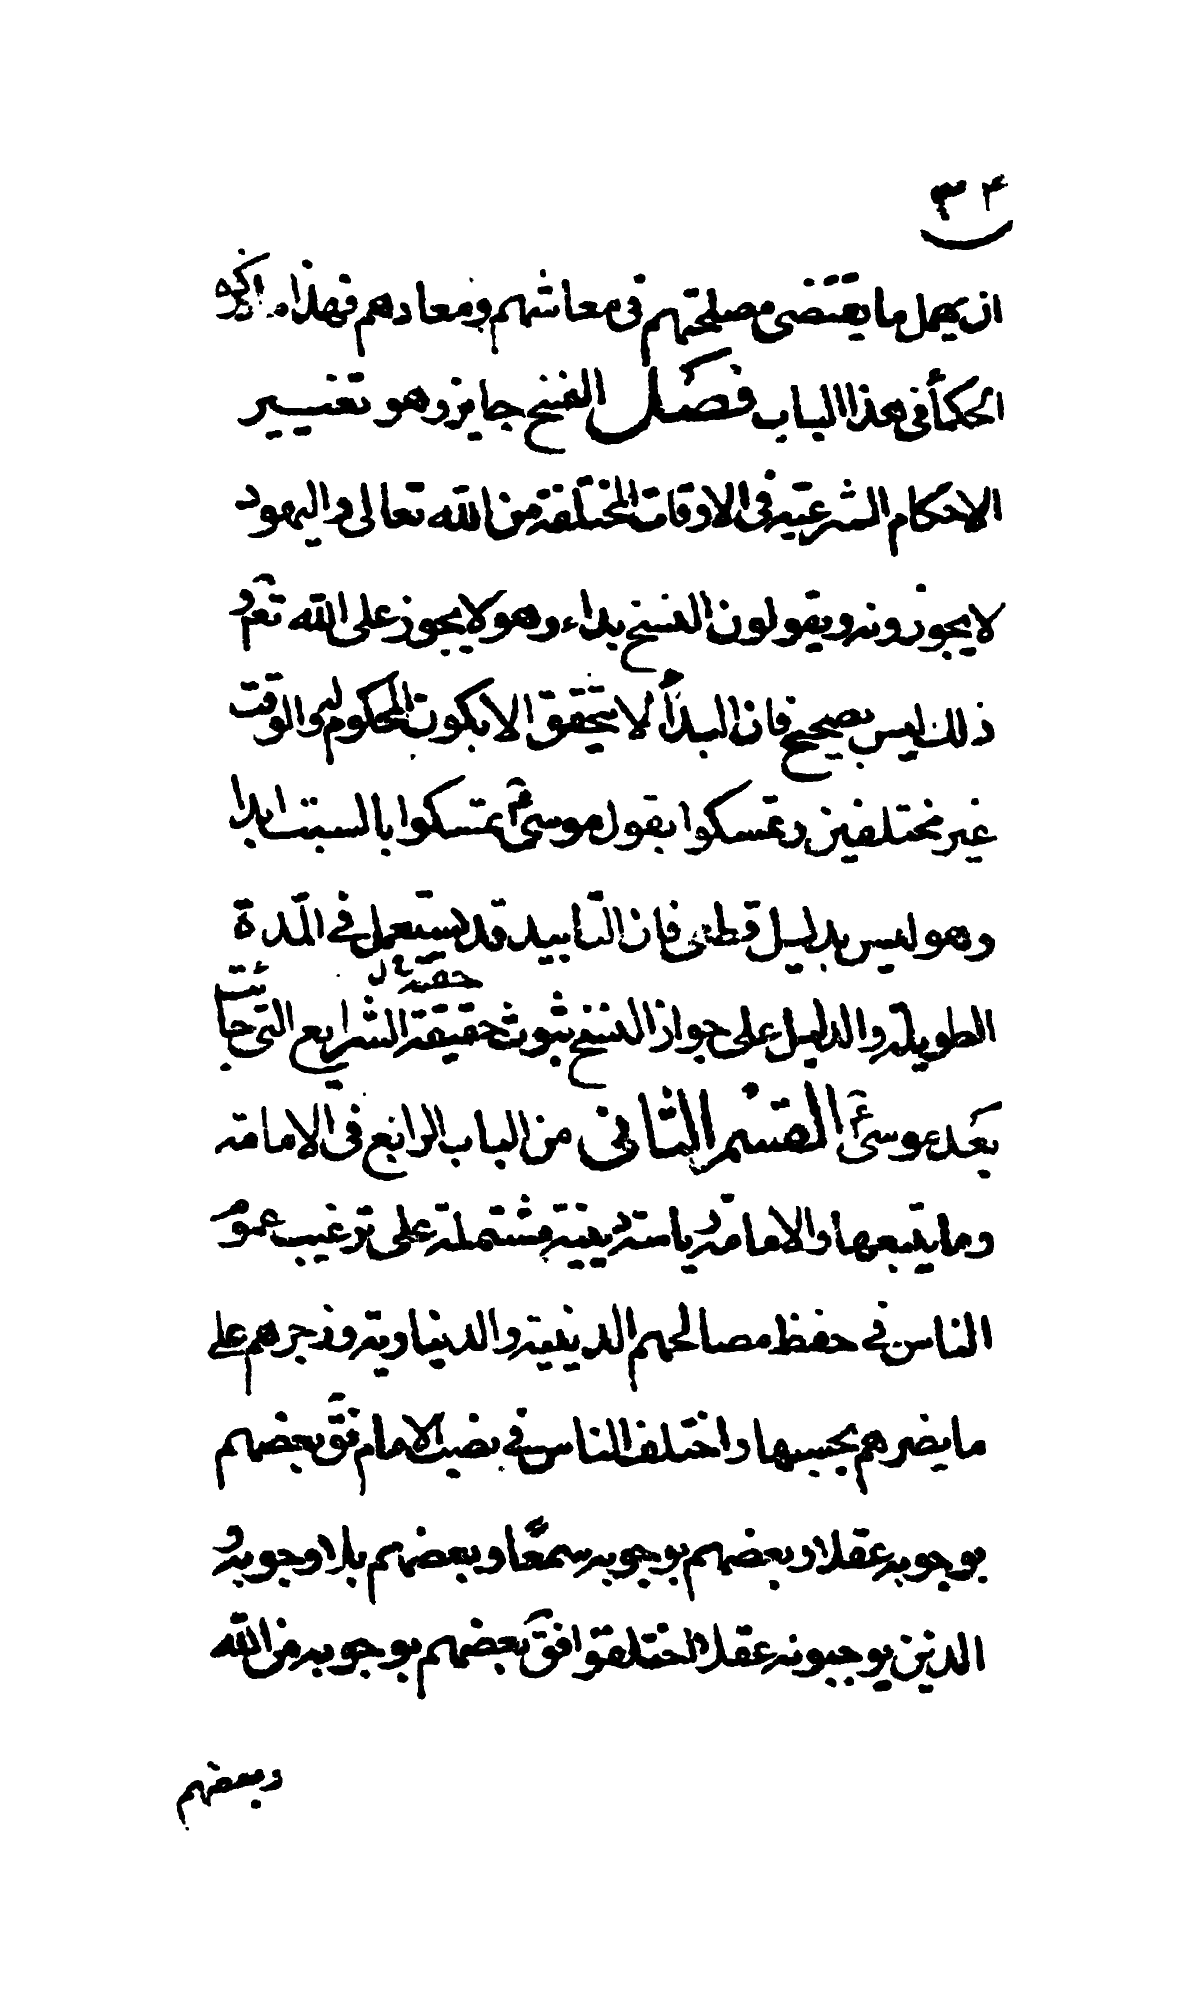 ٣٤
ان يهمل ما يقتضى مصلحتهم فى معاشهم ومعادهم فهذا ما ذكره
الحكمأ فى هذا الباب فصل النسخ جايز وهو تغيير
الاحكام الشرعية فى الاوقات المختلفة من الله تعالى واليهود
لا يجوزونه ويقولون النسخ بداء وهو لا يجوز على الله تعم و
ذلك ليس بصحيح فان البدأ لا يتحقق الا بكون المحكوم به والوقت
غير مختلفين وتمسكوا بقول موسى ع تمسكوا بالسبت ابدا
وهو ليس بدليل قطعى فان التابيد قد يستعمل فى المدة
الطويلة والدليل على جواز النسخ ثبوت حقيقة الشرايع التى جائت
حقية ل
بعد موسى ع القسم الثانى من الباب الرابع فى الامامة
وما يتبعها والامامة رياسة دينية مشتملة على ترغيب عموم
الناس فى حفظ مصالحهم الدينية والدنياوية وزجرهم على
ما يضرهم بحسبها واختلف الناس فى نصب الامام فق بعضهم
بوجوبه عقلا وبعضهم بوجوبه سمعًا وبعضهم بلا وجوبه و
الذين يوجبونه عقلا اختلفوا فق بعضهم بوجوبه من الله
وبعضهم